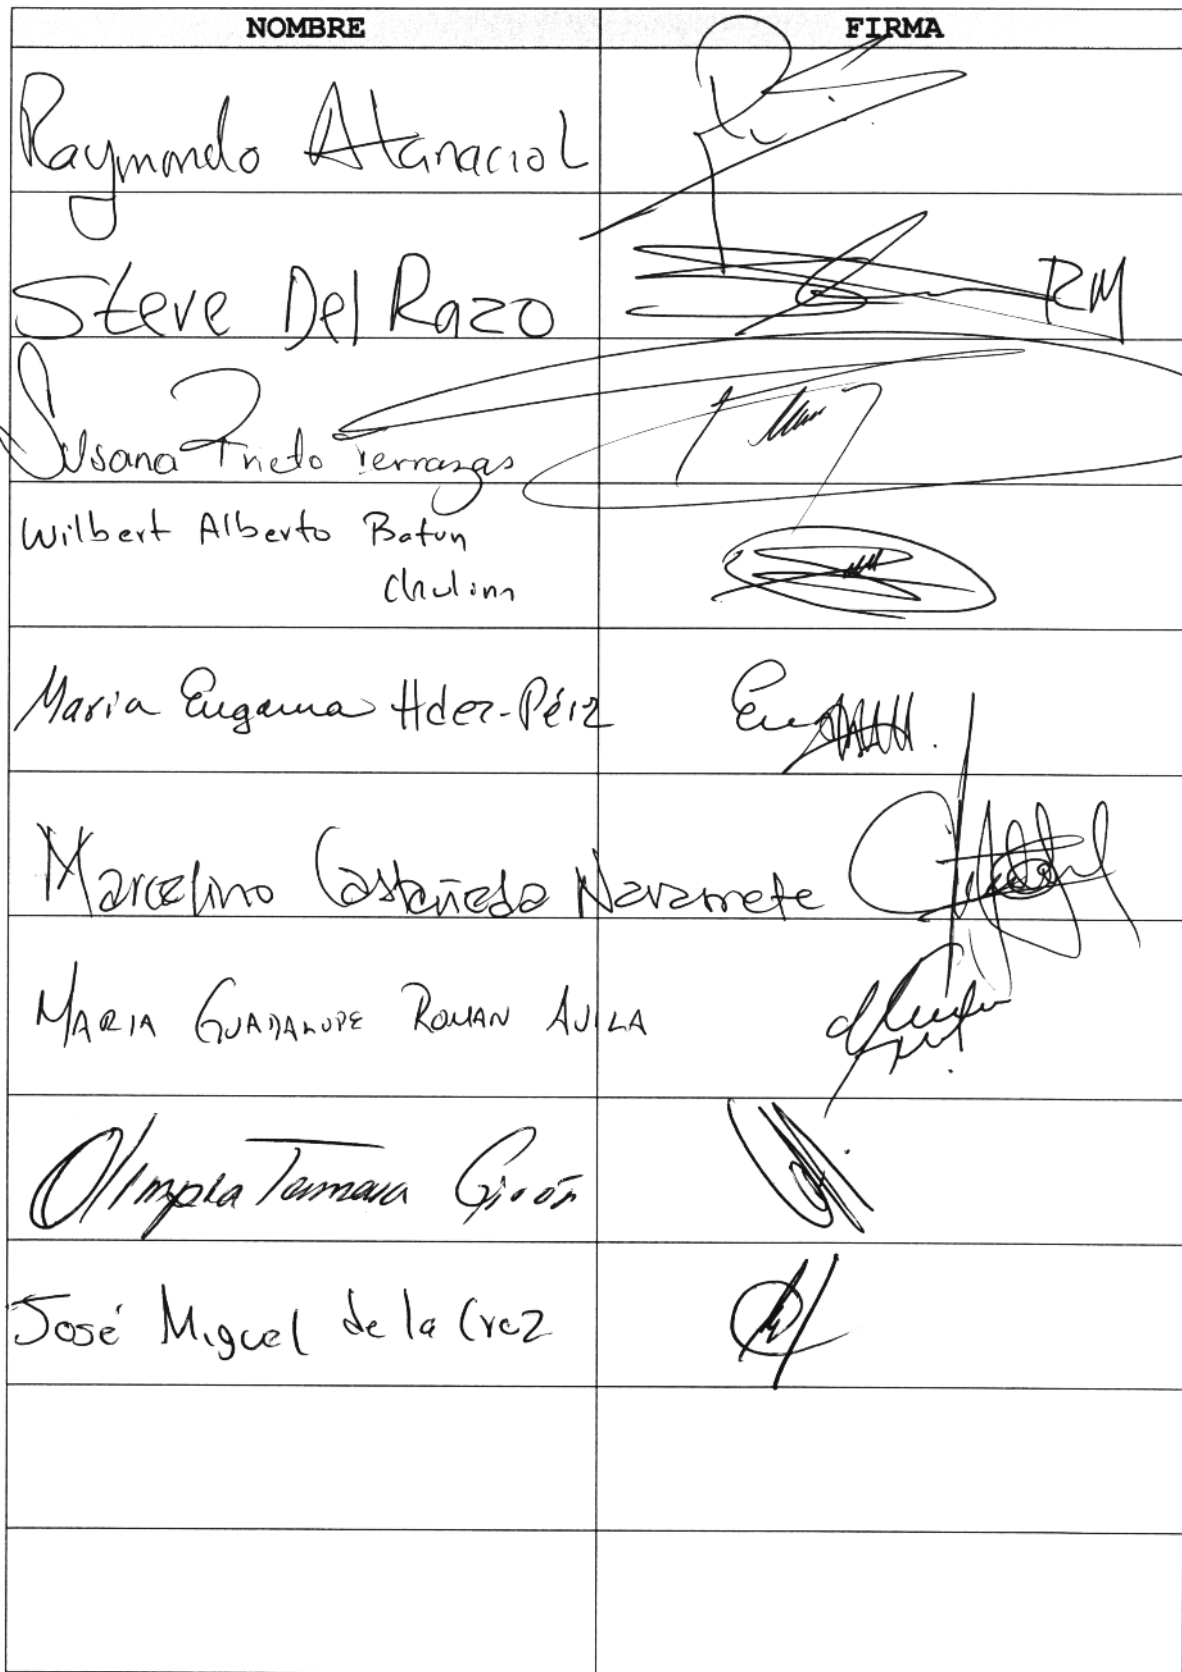 NOMBRE FIRMA
Raymondo Atanacio L
Steve Del Razo RM
Susana Prieto Terrazas
Wilbert Alberto Batun
Chulim
Maria Eugenia Hdez-Pérez
Marcelino Castañeda Navarrete
MARIA GUADALUPE ROMAN AVILA
Olimpia Tamara Girón
José Miguel de la Cruz